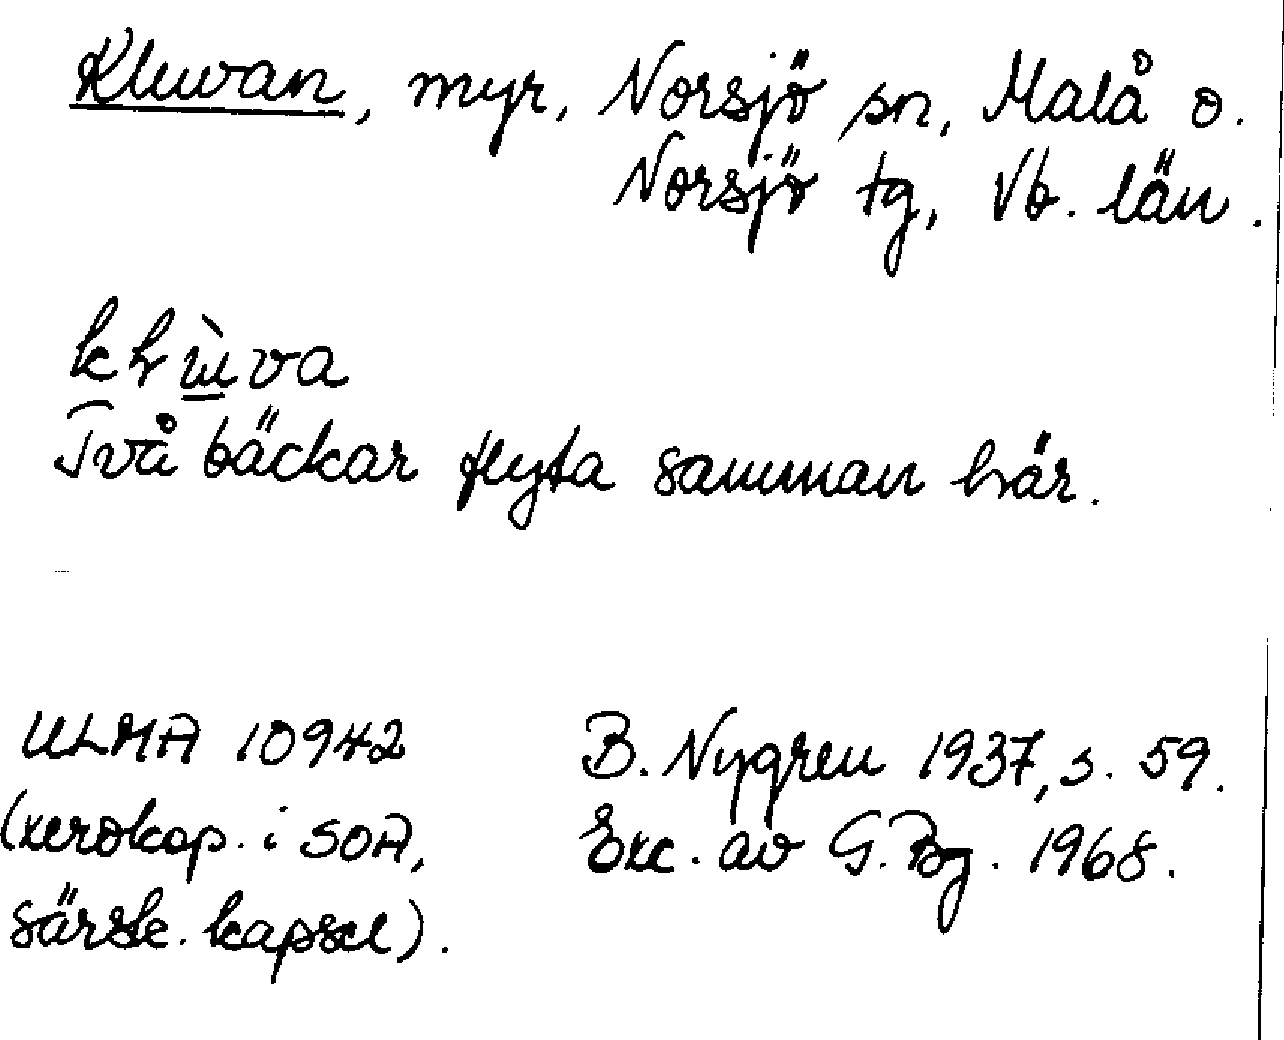 Kluvan, myr, Norsjö sn, Malå o.
Norsjö tg, Vb. län.
Två bäckar flyta samman här.
ULMA 10942
(xerokop. i SOA,
särsk. kapsel).
B. Nygren 1937, s. 59.
Exc. av G. Bg. 1968.